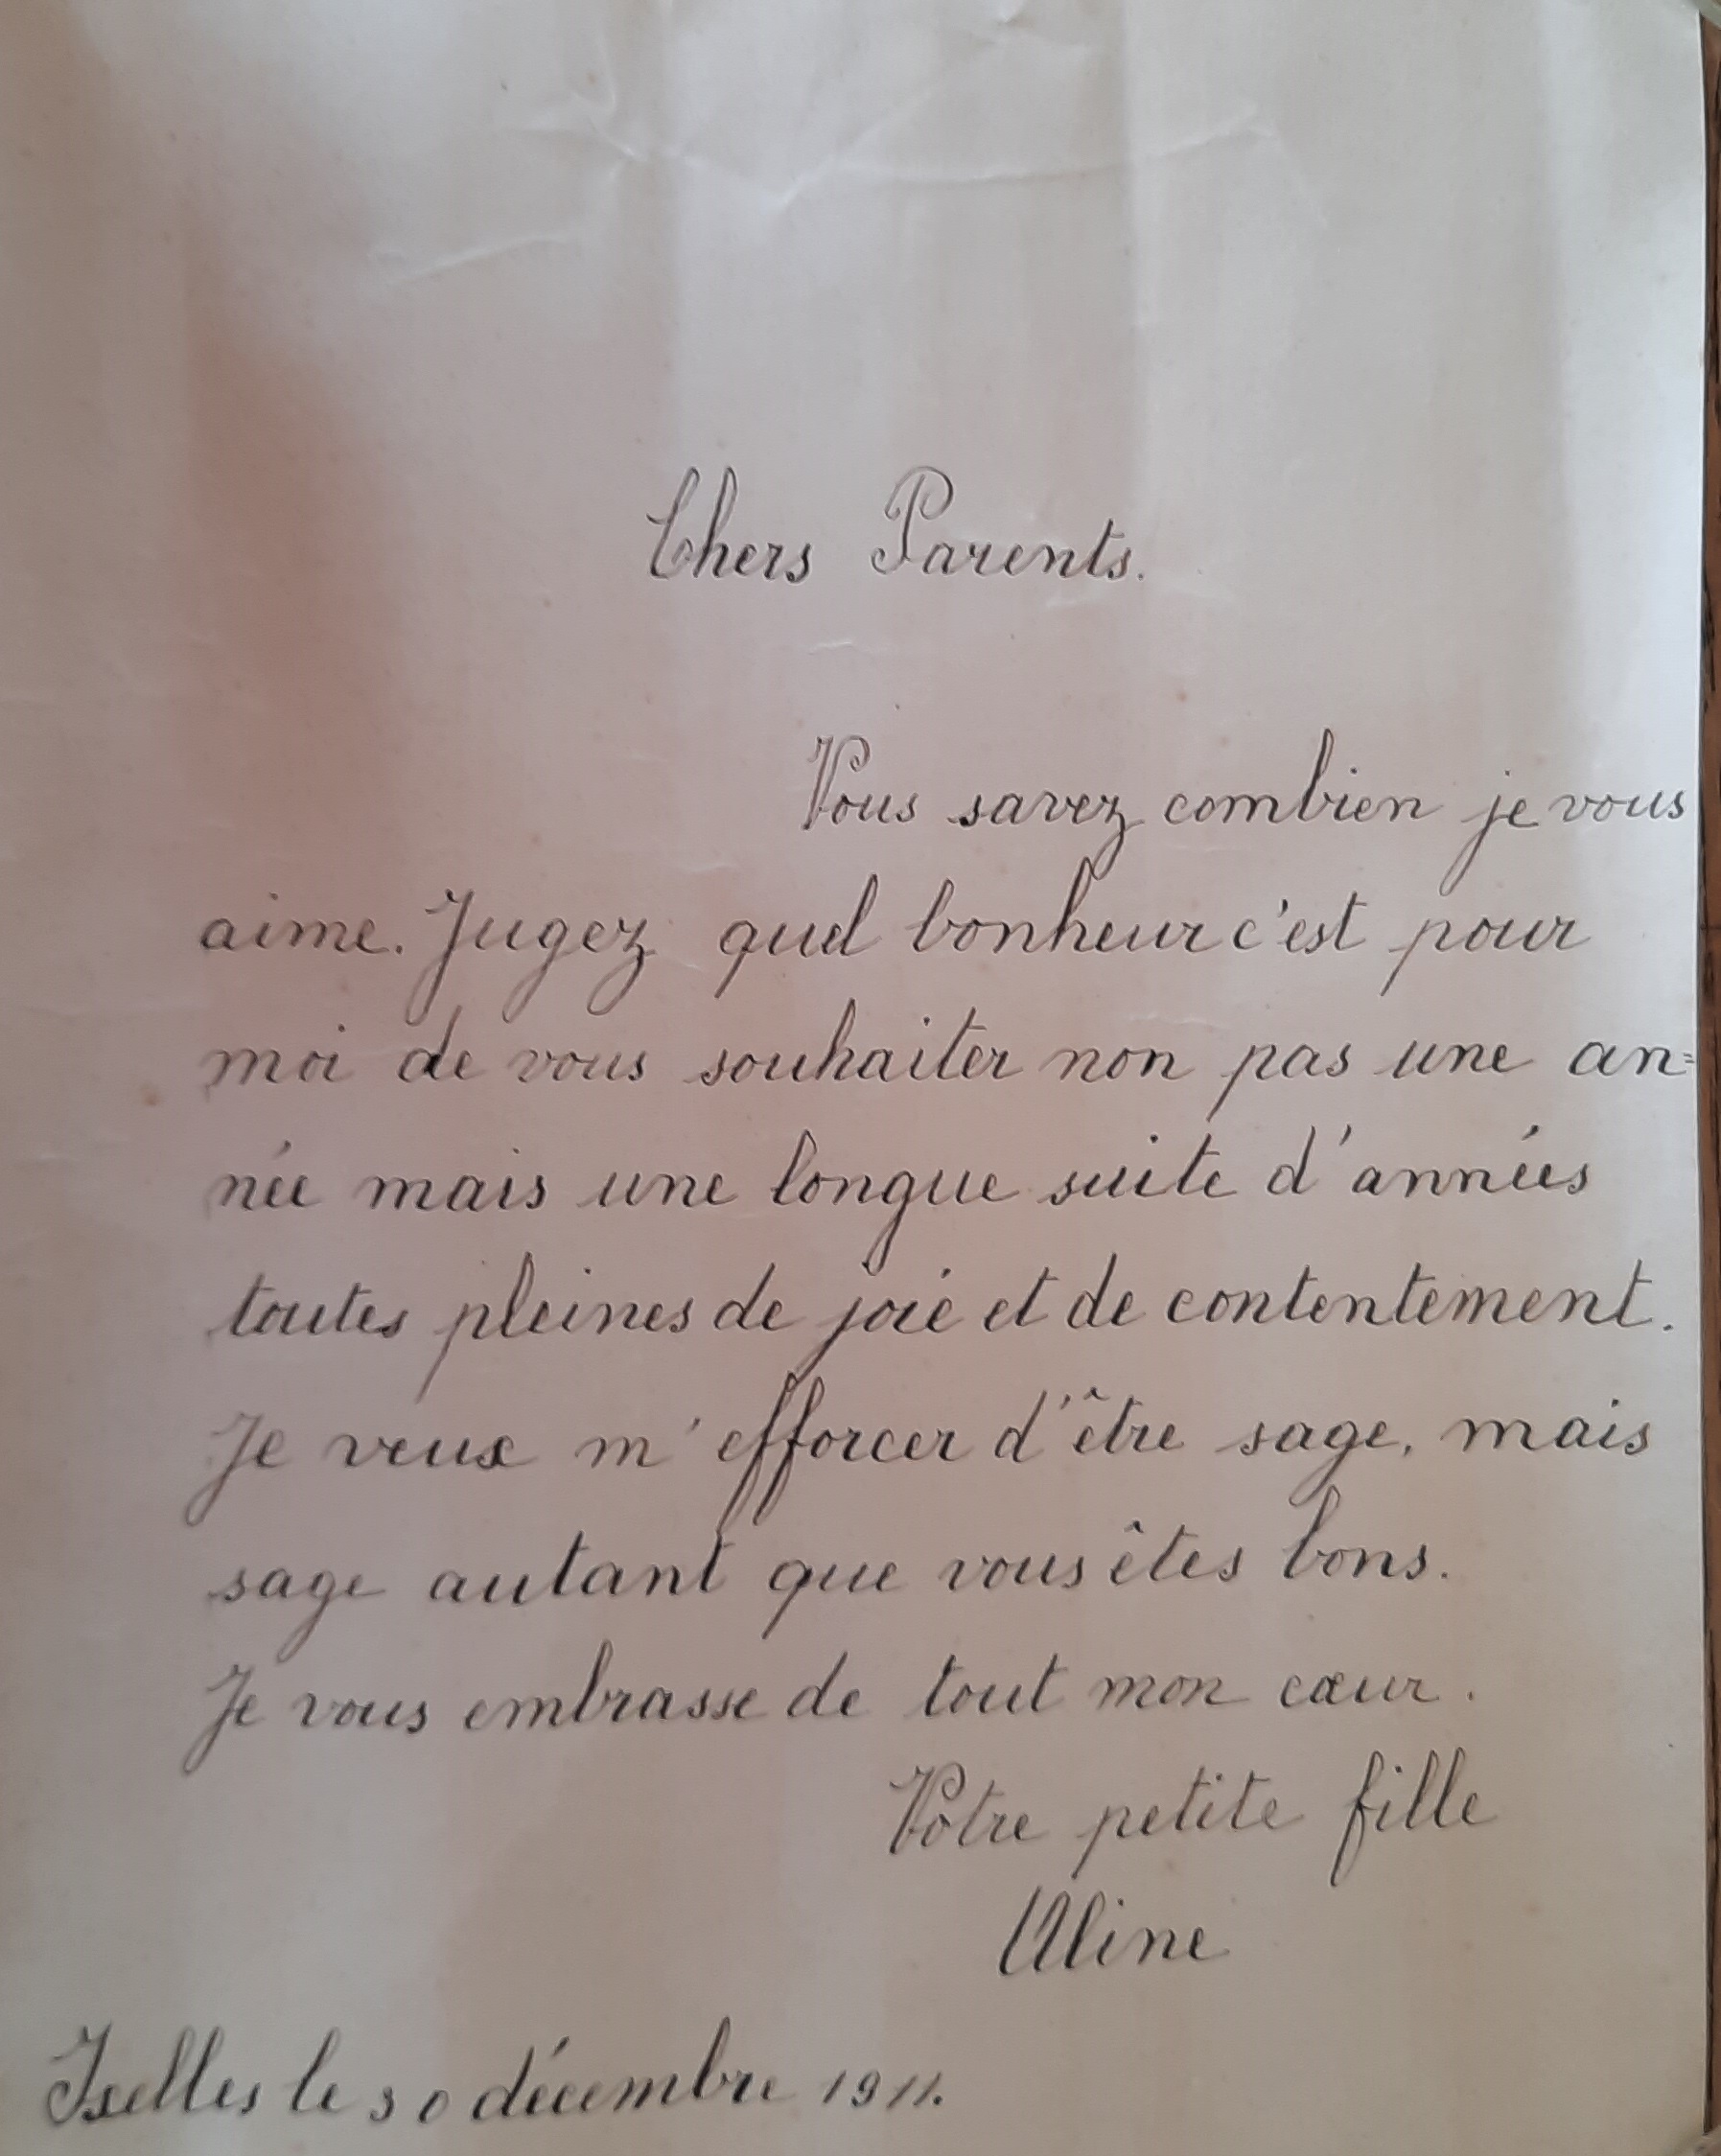 Chers Parents.
Vous savez combien je vous
aime. Jugez quel bonheur c'est pour
moi de vous souhaiter non pas une an=
née mais une longue suite d'années
toutes pleines de joie et de contentement.
Je veux m'efforcer d'être sage, mais
sage autant que vous êtes bons.
Je vous embrasse de tout mon cœur.
Votre petite fille
Aline
Ixelles le 30 décembre 1911.